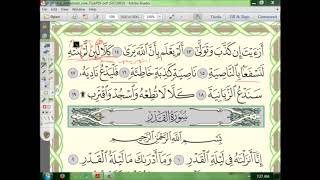 Adobe Reader
Tools Sign Comment
أَرَءَيْتَ إِن كَذَّبَ وَتَوَلَّىٰٓ ١٣ أَلَمْ يَعْلَم بِأَنَّ ٱللَّهَ يَرَىٰ ١٤ كَلَّا لَئِن لَّمْ يَنتَهِ
لَنَسْفَعًۢا بِٱلنَّاصِيَةِ ١٥ نَاصِيَةٍ كَٰذِبَةٍ خَاطِئَةٍ ١٦ فَلْيَدْعُ نَادِيَهُۥ ١٧
سَنَدْعُ ٱلزَّبَانِيَةَ ١٨ كَلَّا لَا تُطِعْهُ وَٱسْجُدْ وَٱقْتَرِب ۩ ١٩
سُورَةُ ٱلْقَدْرِ
بِسْمِ ٱللَّهِ ٱلرَّحْمَٰنِ ٱلرَّحِيمِ
إِنَّآ أَنزَلْنَٰهُ فِى لَيْلَةِ ٱلْقَدْرِ ١ وَمَآ أَدْرَىٰكَ مَا لَيْلَةُ ٱلْقَدْرِ ٢